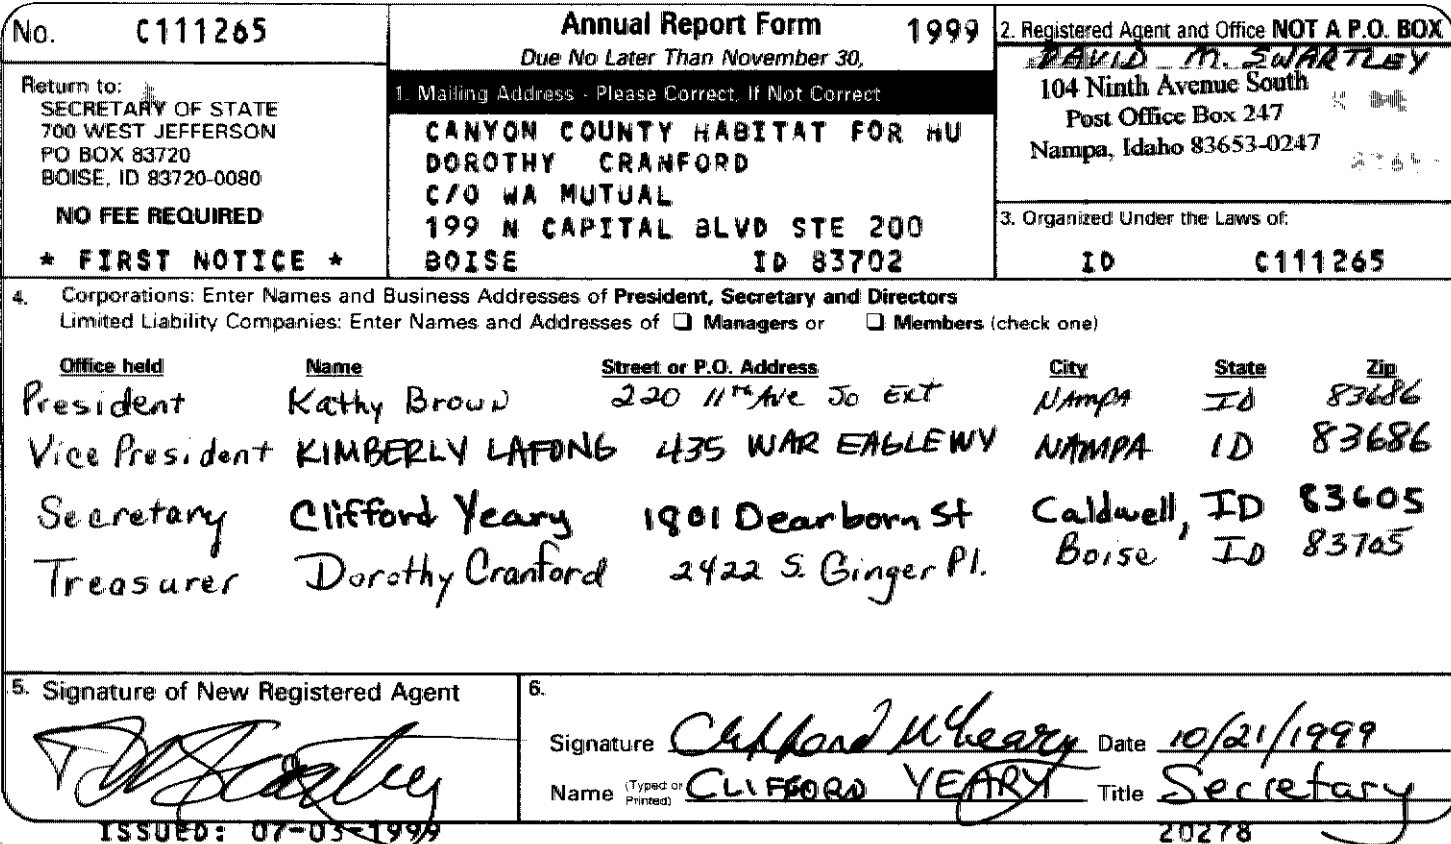 No. C111265
Return to:
SECRETARY OF STATE
700 WEST JEFFERSON
PO BOX 83720
BOISE, ID 83720-0080
NO FEE REQUIRED
* FIRST NOTICE *
Annual Report Form 1999
Due No Later Than November 30,
1. Mailing Address - Please Correct, If Not Correct
CANYON COUNTY HABITAT FOR HU
DOROTHY CRANFORD
C/O WA MUTUAL
199 N CAPITAL BLVD STE 200
BOISE ID 83702
2. Registered Agent and Office NOT A P.O. BOX
DAVID M. SWARTLEY
104 Ninth Avenue South
Post Office Box 247
Nampa, Idaho 83653-0247
3. Organized Under the Laws of:
ID C111265
4. Corporations: Enter Names and Business Addresses of President, Secretary and Directors
Limited Liability Companies: Enter Names and Addresses of ☐ Managers or ☐ Members (check one)
Office held Name Street or P.O. Address City State Zip
President Kathy Brown 220 11th Ave So Ext NAmpA ID 83686
Vice President KIMBERLY LAFONG 435 WAR EAGLE WY NAMPA ID 83686
Secretary Clifford Yeary 1901 Dearborn St Caldwell, ID 83605
Treasurer Dorothy Cranford 2422 S. Ginger Pl. Boise ID 83705
5. Signature of New Registered Agent
6.
Signature Clifford M Yeary Date 10/21/1999
Name (Typed or Printed) CLIFFORD YEARY Title Secretary
ISSUED: 07-03-1999 20278